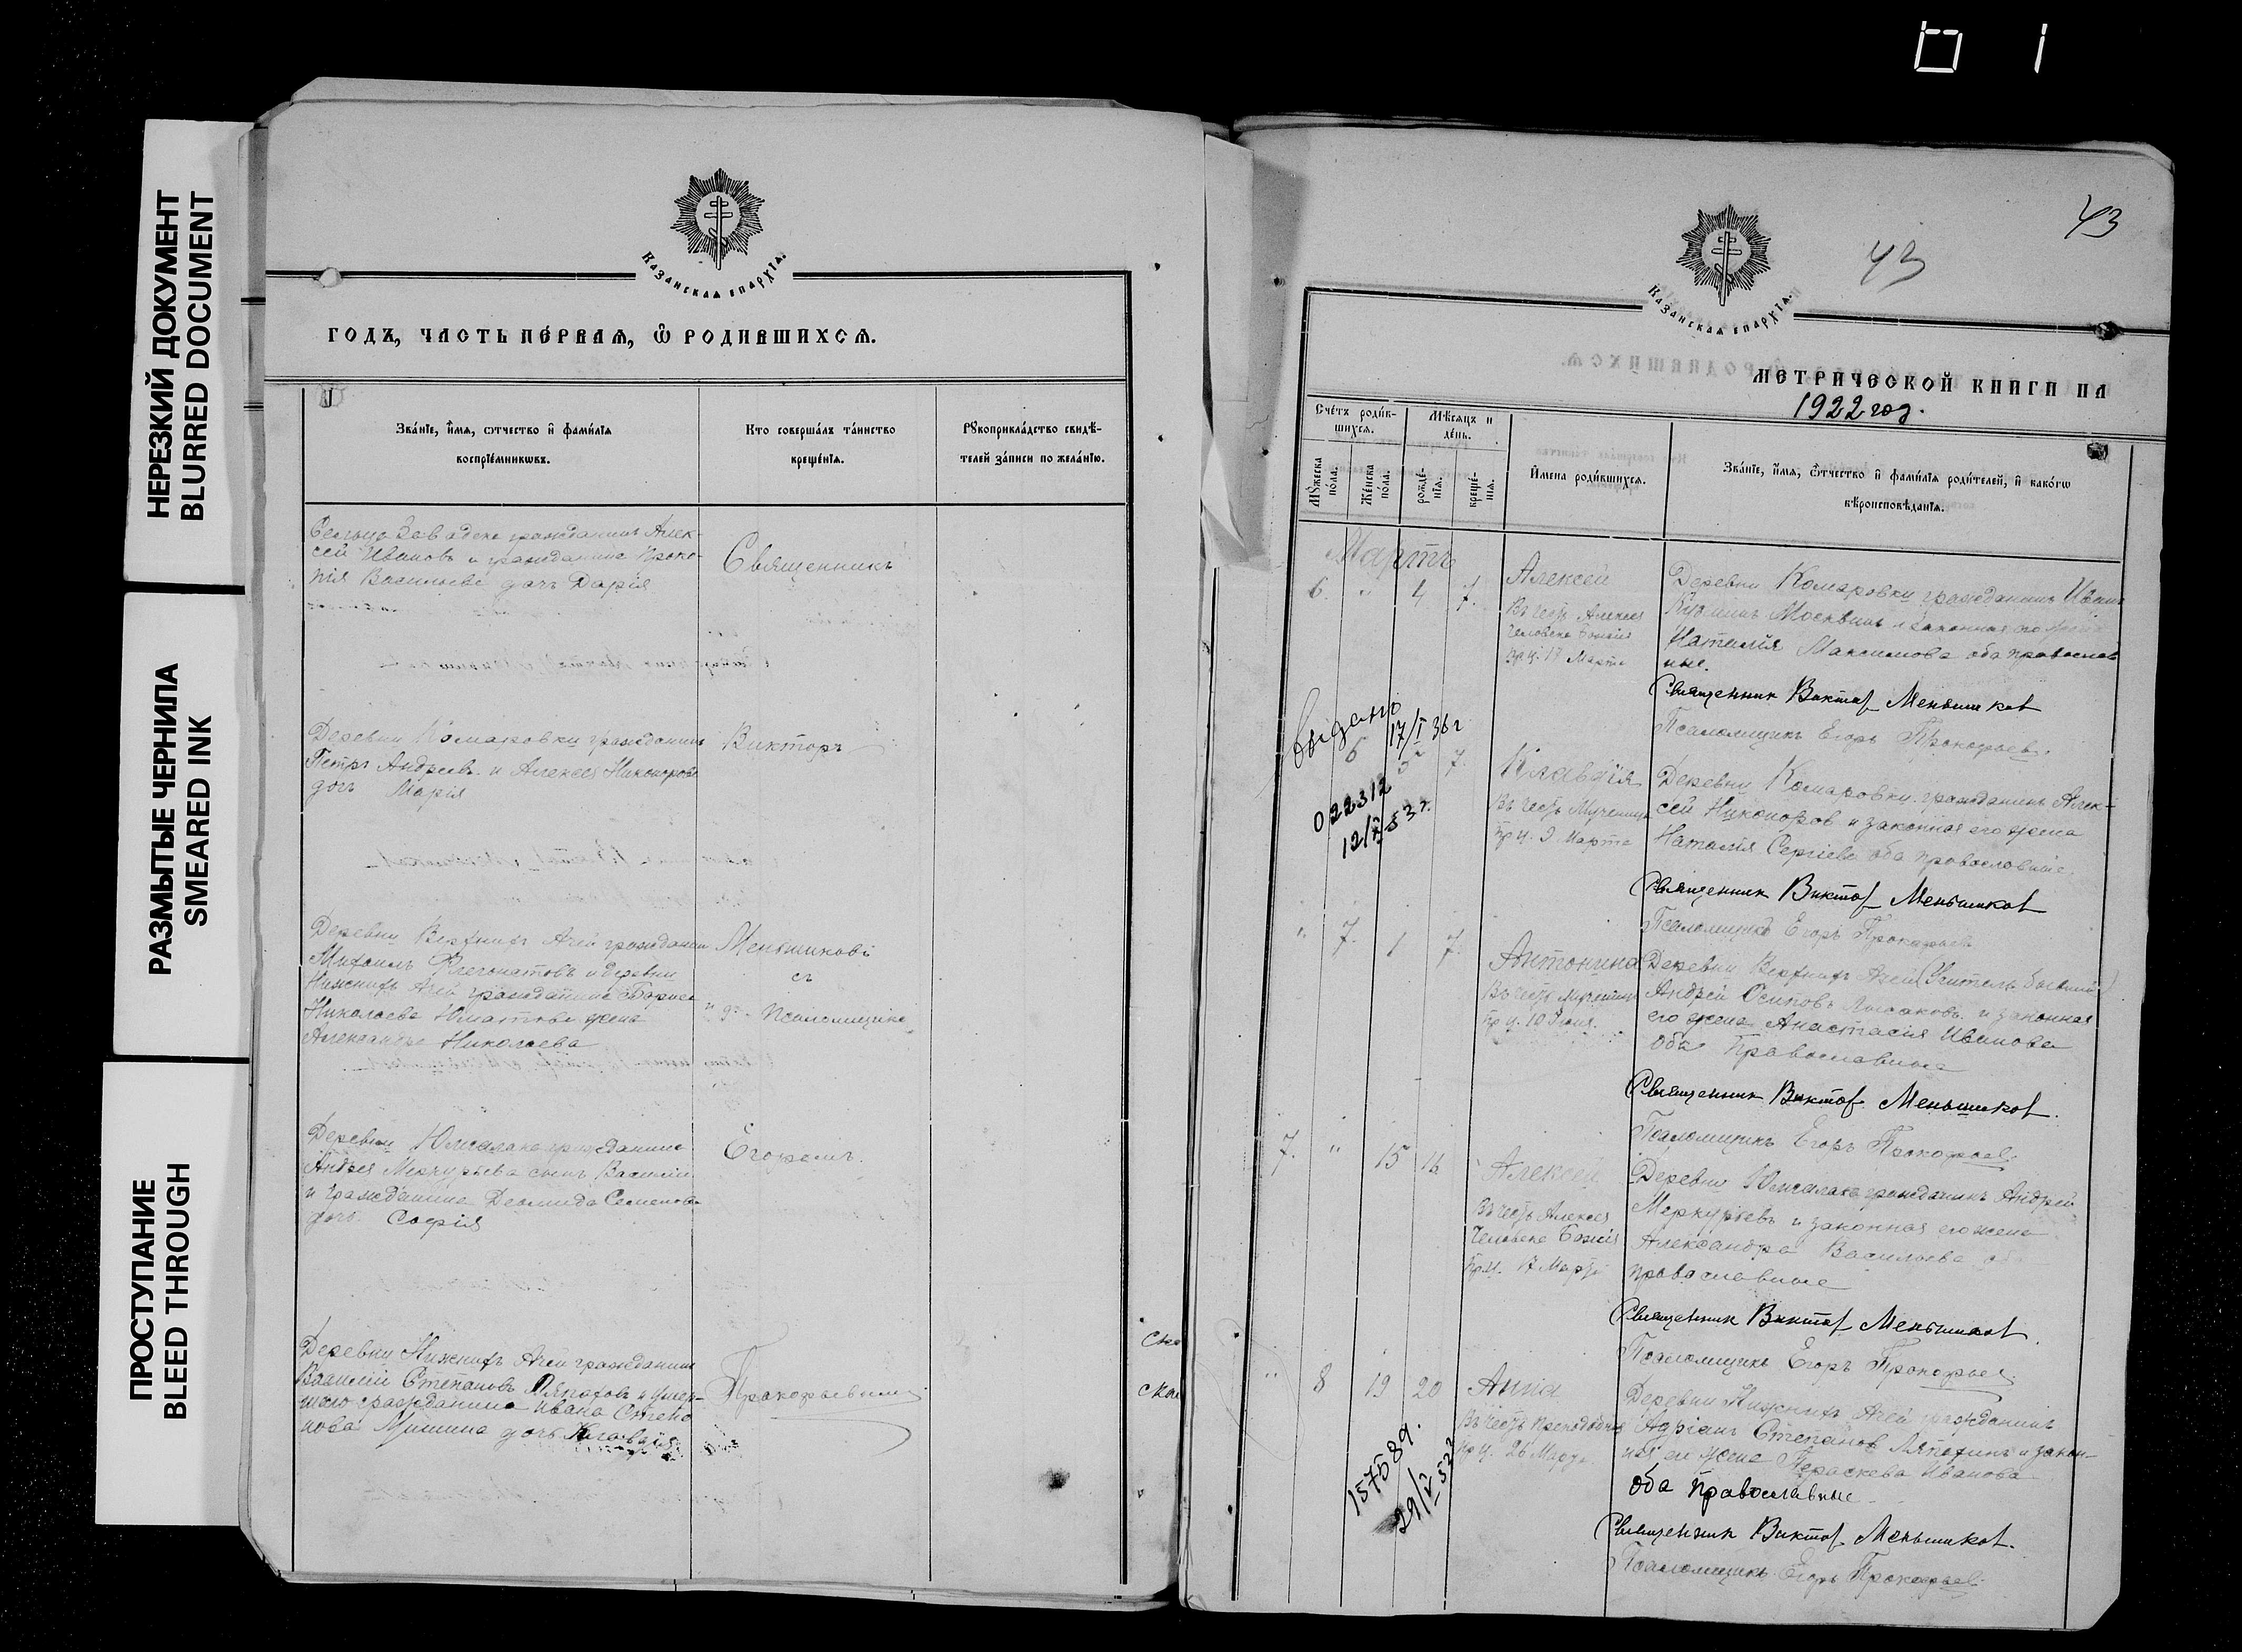 НЕРЕЗКИЙ ДОКУМЕНТ
BLURRED DOCUMENT
РАЗМЫТЫЕ ЧЕРНИЛА
SMEARED INK
ПРОСТУПАНИЕ
BLEED THROUGH
Казанская епархія.
годъ, часть первая, ѿ родившихсѧ.
Званіе, имѧ, отчество и фамиліѧ
воспріемникѡвъ.
Кто совершалъ таинство
крещеніѧ.
Рꙋкоприкладство свидѣ-
телей записи по желанію.
гражданинъ Алек-
сей Ивановъ и гражданина Проко-
пія Васильева дочь Дарія
Священникъ
Деревни Комаровки гражданинъ
Петръ Андреевъ и Алексея Никонорова
дочь Марія
Викторъ
Деревни Верхнихъ Ачей гражданин
Михаилъ и деревни
Нижнихъ Ачей гражданина
Николаева жена
Александра Николаева
Меньшиковъ
съ
Псаломщико
Деревни гражданина
Андрея Меркурьева сынъ Василій
и гражданина Деомида Семенова
дочь Софія
Егоромъ
Деревни Нижнихъ Ачей гражданинъ
Василій Степановъ и умер-
шаго гражданина Ивана Степа
нова Мишина дочь Клавдія
Прокофьевымъ
43
43
Казанская епархія.
Метрической книги на
1922 год.
Счетъ родив-
шихсѧ.
Мѣсѧцъ и
день.
Мꙋжеска
пола.
Женска
пола.
рожде-
ніѧ.
креще-
ніѧ.
Имена родившихсѧ.
Званіе, имѧ, ѿчество и фамиліѧ родителей, и какогѡ
вѣроисповѣданіѧ.
Мартъ
6. " 4 7.
Алексей
Въ честь Алексея
Человека Божія
пр. ч. 17 Марта
Деревни Комаровки гражданинъ Иванъ
Москвинъ и законная его жена
Наталія Максимова оба православ
ные.
Священник Виктор Меньшиков
Псаломщикъ Егоръ Прокофьев.
Выдано
17/I 36 г
6 5 7.
022312
12/V 53 г.
Клавдія
Въ честь Мученицы
пр. ч. 9 Марта
Деревни Комаровки гражданинъ Алек-
сей Никоноров и законная его жена
Наталія Сергіева оба православные.
Священник Виктор Меньшиков
Псаломщикъ Егоръ Прокофьев
" 7. 1 7.
Антонина
Въ честь Мученицы
пр. ч. 10 Іюня.
Деревни Верхнихъ Ачей (Учитель бывший)
Андрей Осиповъ Лысаковъ и законная
его жена Анастасія Иванова
оба православные
Священник Виктор Меньшиков.
Псаломщикъ Егоръ Прокофьев.
7. " 15 16
Алексей
Въ честь Алексея
Человека Божія
пр. ч. 17 Марта
Деревни гражданинъ Андрей
Меркурьевъ и законная его жена
Александра Васильева
православные
Священник Виктор Меньшиков.
Псаломщикъ Егоръ Прокофьев.
" 8 19 20
157589.
29/V 53 г
Анна
Въ честь преподобной
пр. ч. 26 Марта
Деревни Нижнихъ Ачей гражданинъ
Адріанъ Степанов и закон-
ная его жена Параскева Иванова
оба православные
Священник Виктор Меньшиков.
Псаломщикъ Егоръ Прокофьев